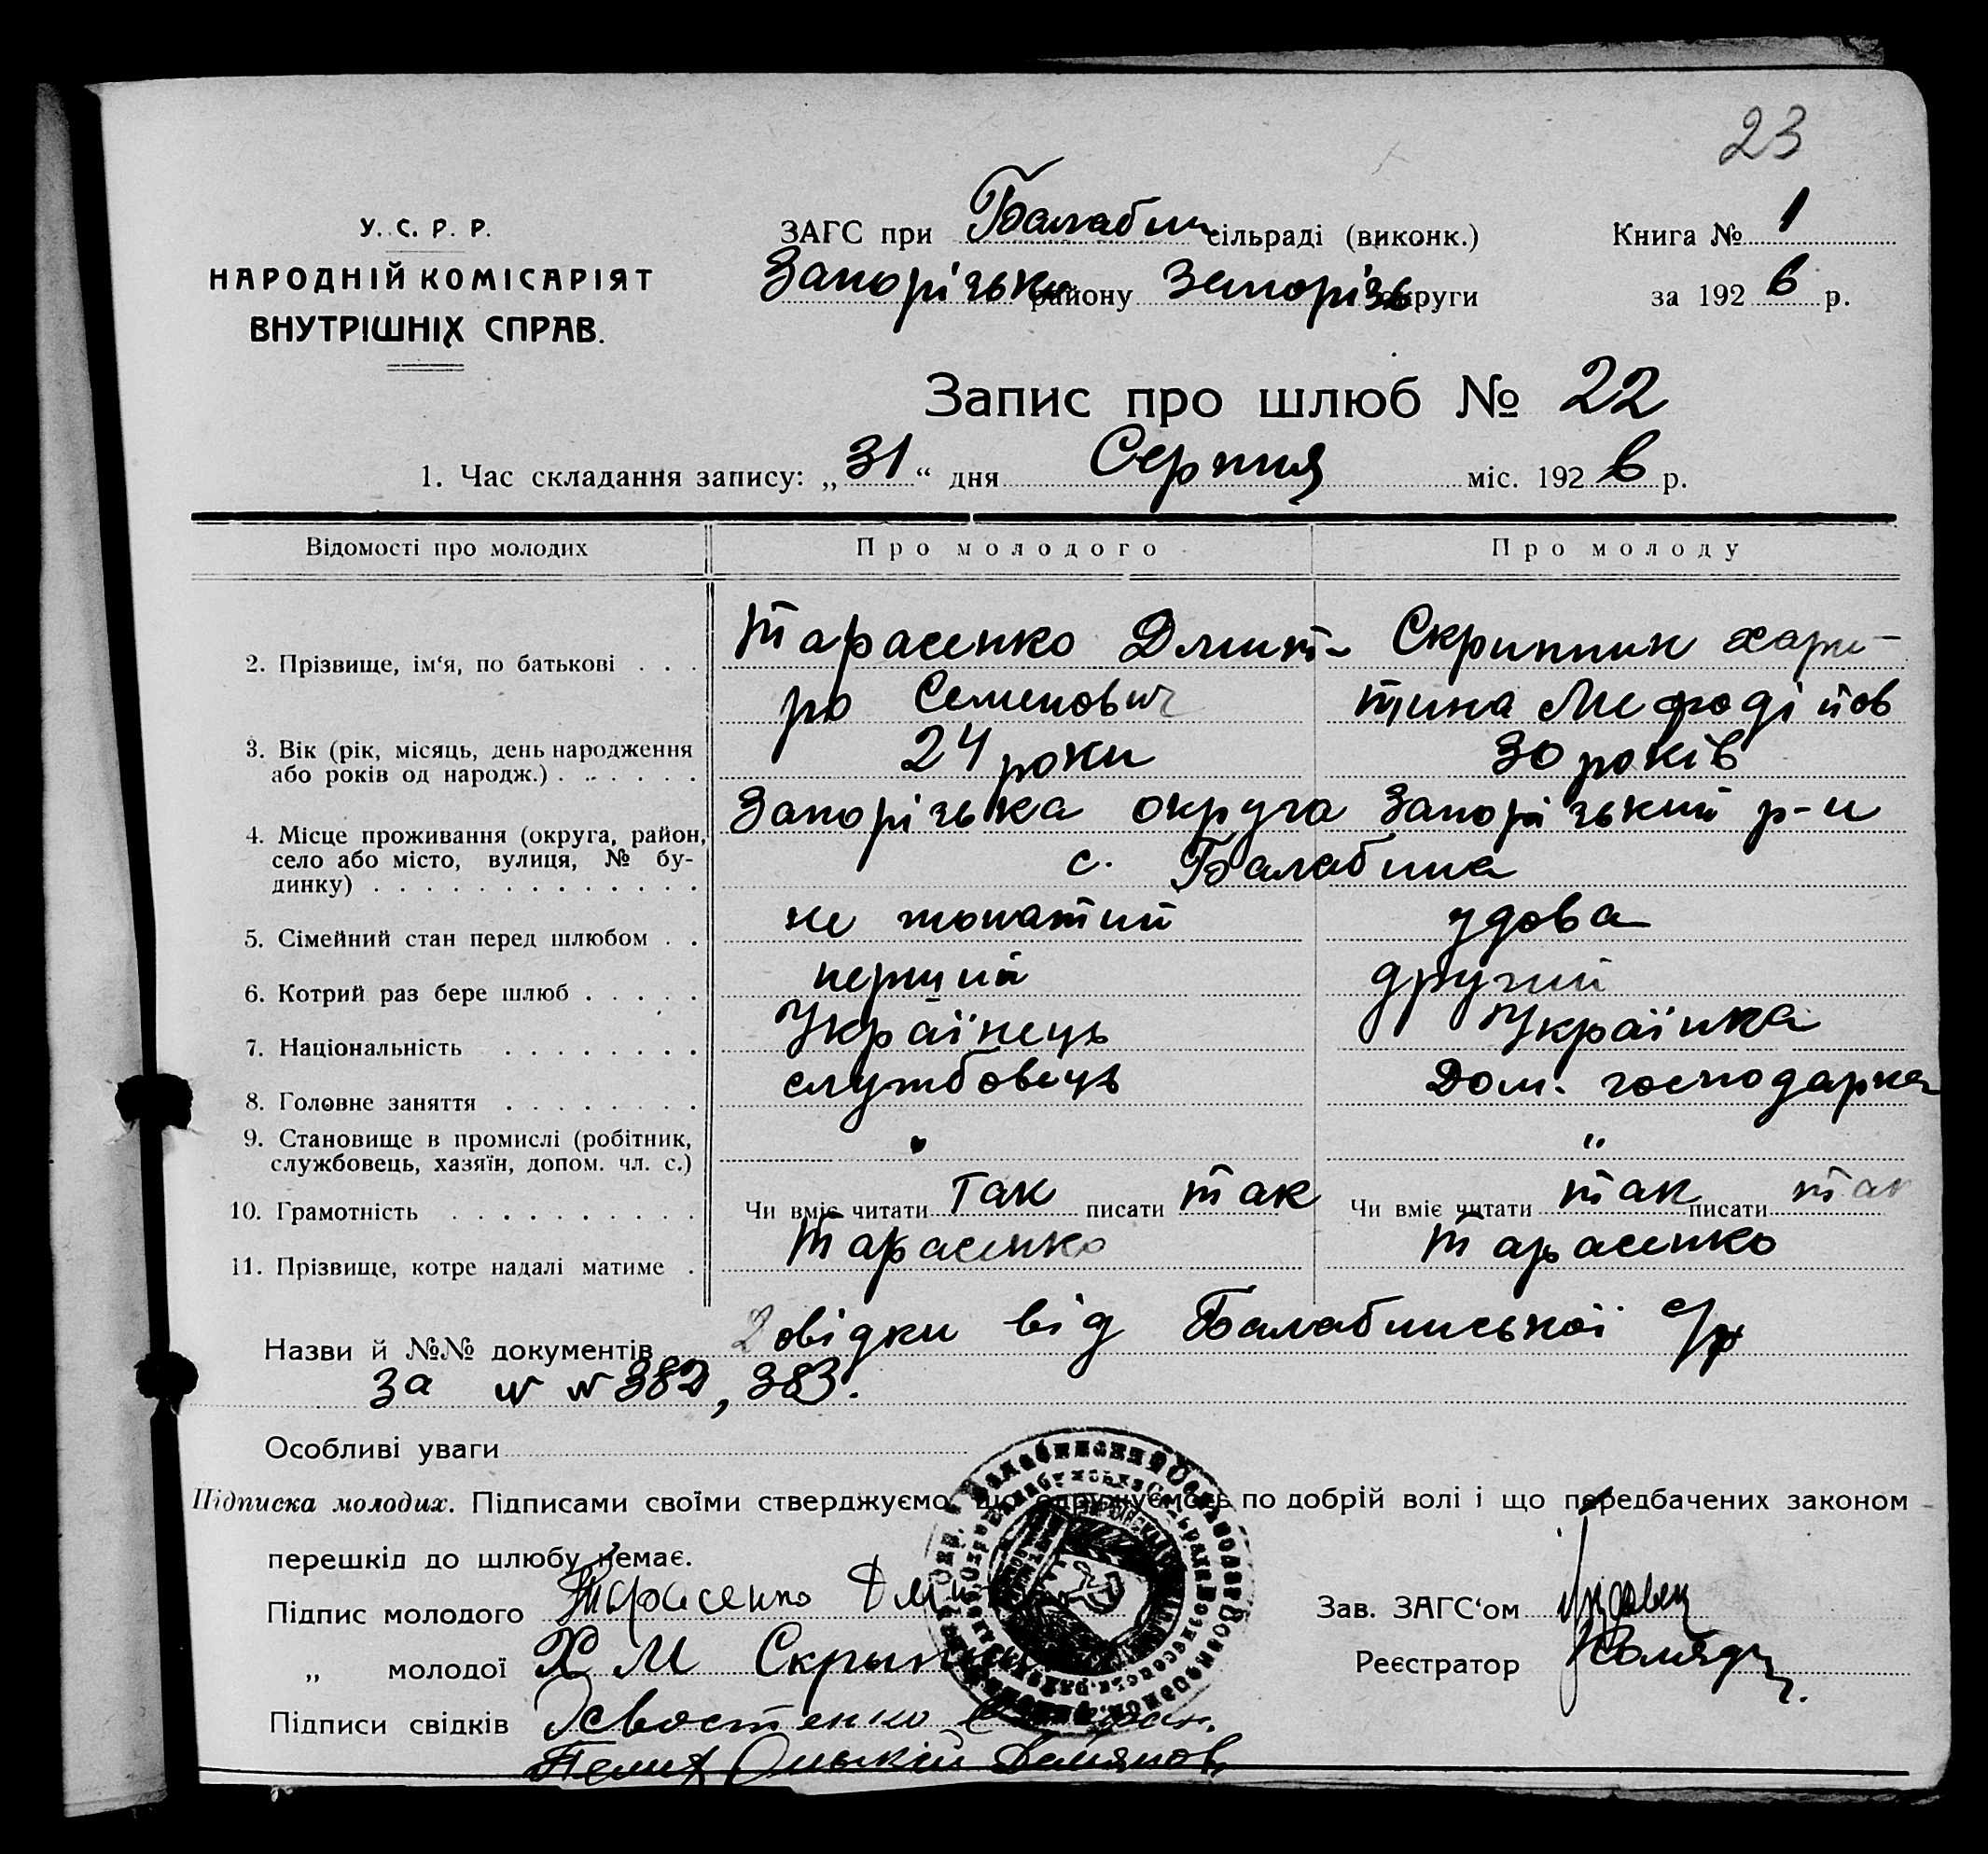 23
У. С. Р. Р.
НАРОДНІЙ КОМІСАРІЯТ
ВНУТРІШНІХ СПРАВ.
ЗАГС при Балабин сільраді (виконк.)
Запорізьки району Запорізь округи
Книга № 1
за 1926 р.
Запис про шлюб № 22
1. Час складання запису: „31“ дня Серпня міс. 1926 р.
Відомості про молодих Про молодого Про молоду
2. Прізвище, ім‘я, по батькові . . . Тарасенко Дмит- Скрипник Хари-
ро Семенович тина Мефодійов
3. Вік (рік, місяць, день народження
або років од народж.) . . . . . . 24 роки 30 років
4. Місце проживання (округа, район, Запорізька округа Запорізький р-н
село або місто, вулиця, № бу- с. Балабина
динку) . . . . . . . . . . . . .
5. Сімейний стан перед шлюбом . . не жонатий удова
6. Котрий раз бере шлюб . . . . . перший другий
7. Національність . . . . . . . . Українець Українка
8. Головне заняття . . . . . . . . службовець Дом. господарка
9. Становище в промислі (робітник, „
службовець, хазяїн, допом. чл. с.)
10. Грамотність . . . . . . . . . . Чи вміє читати Так писати так Чи вміє читати так писати так
11. Прізвище, котре надалі матиме . Тарасенко Тарасенко
Назви й №№ документів 2 овідки від Балабинської с/р
за № № 382, 383.
Особливі уваги
Підписка молодих. Підписами своїми стверджуємо, що одружуємось по добрій волі і що передбачених законом
перешкід до шлюбу немає.
Підпис молодого Тарасенко Дм
„ молодої Х М Скрыпник
Підписи свідків
Зав. ЗАГС‘ом
Реєстратор